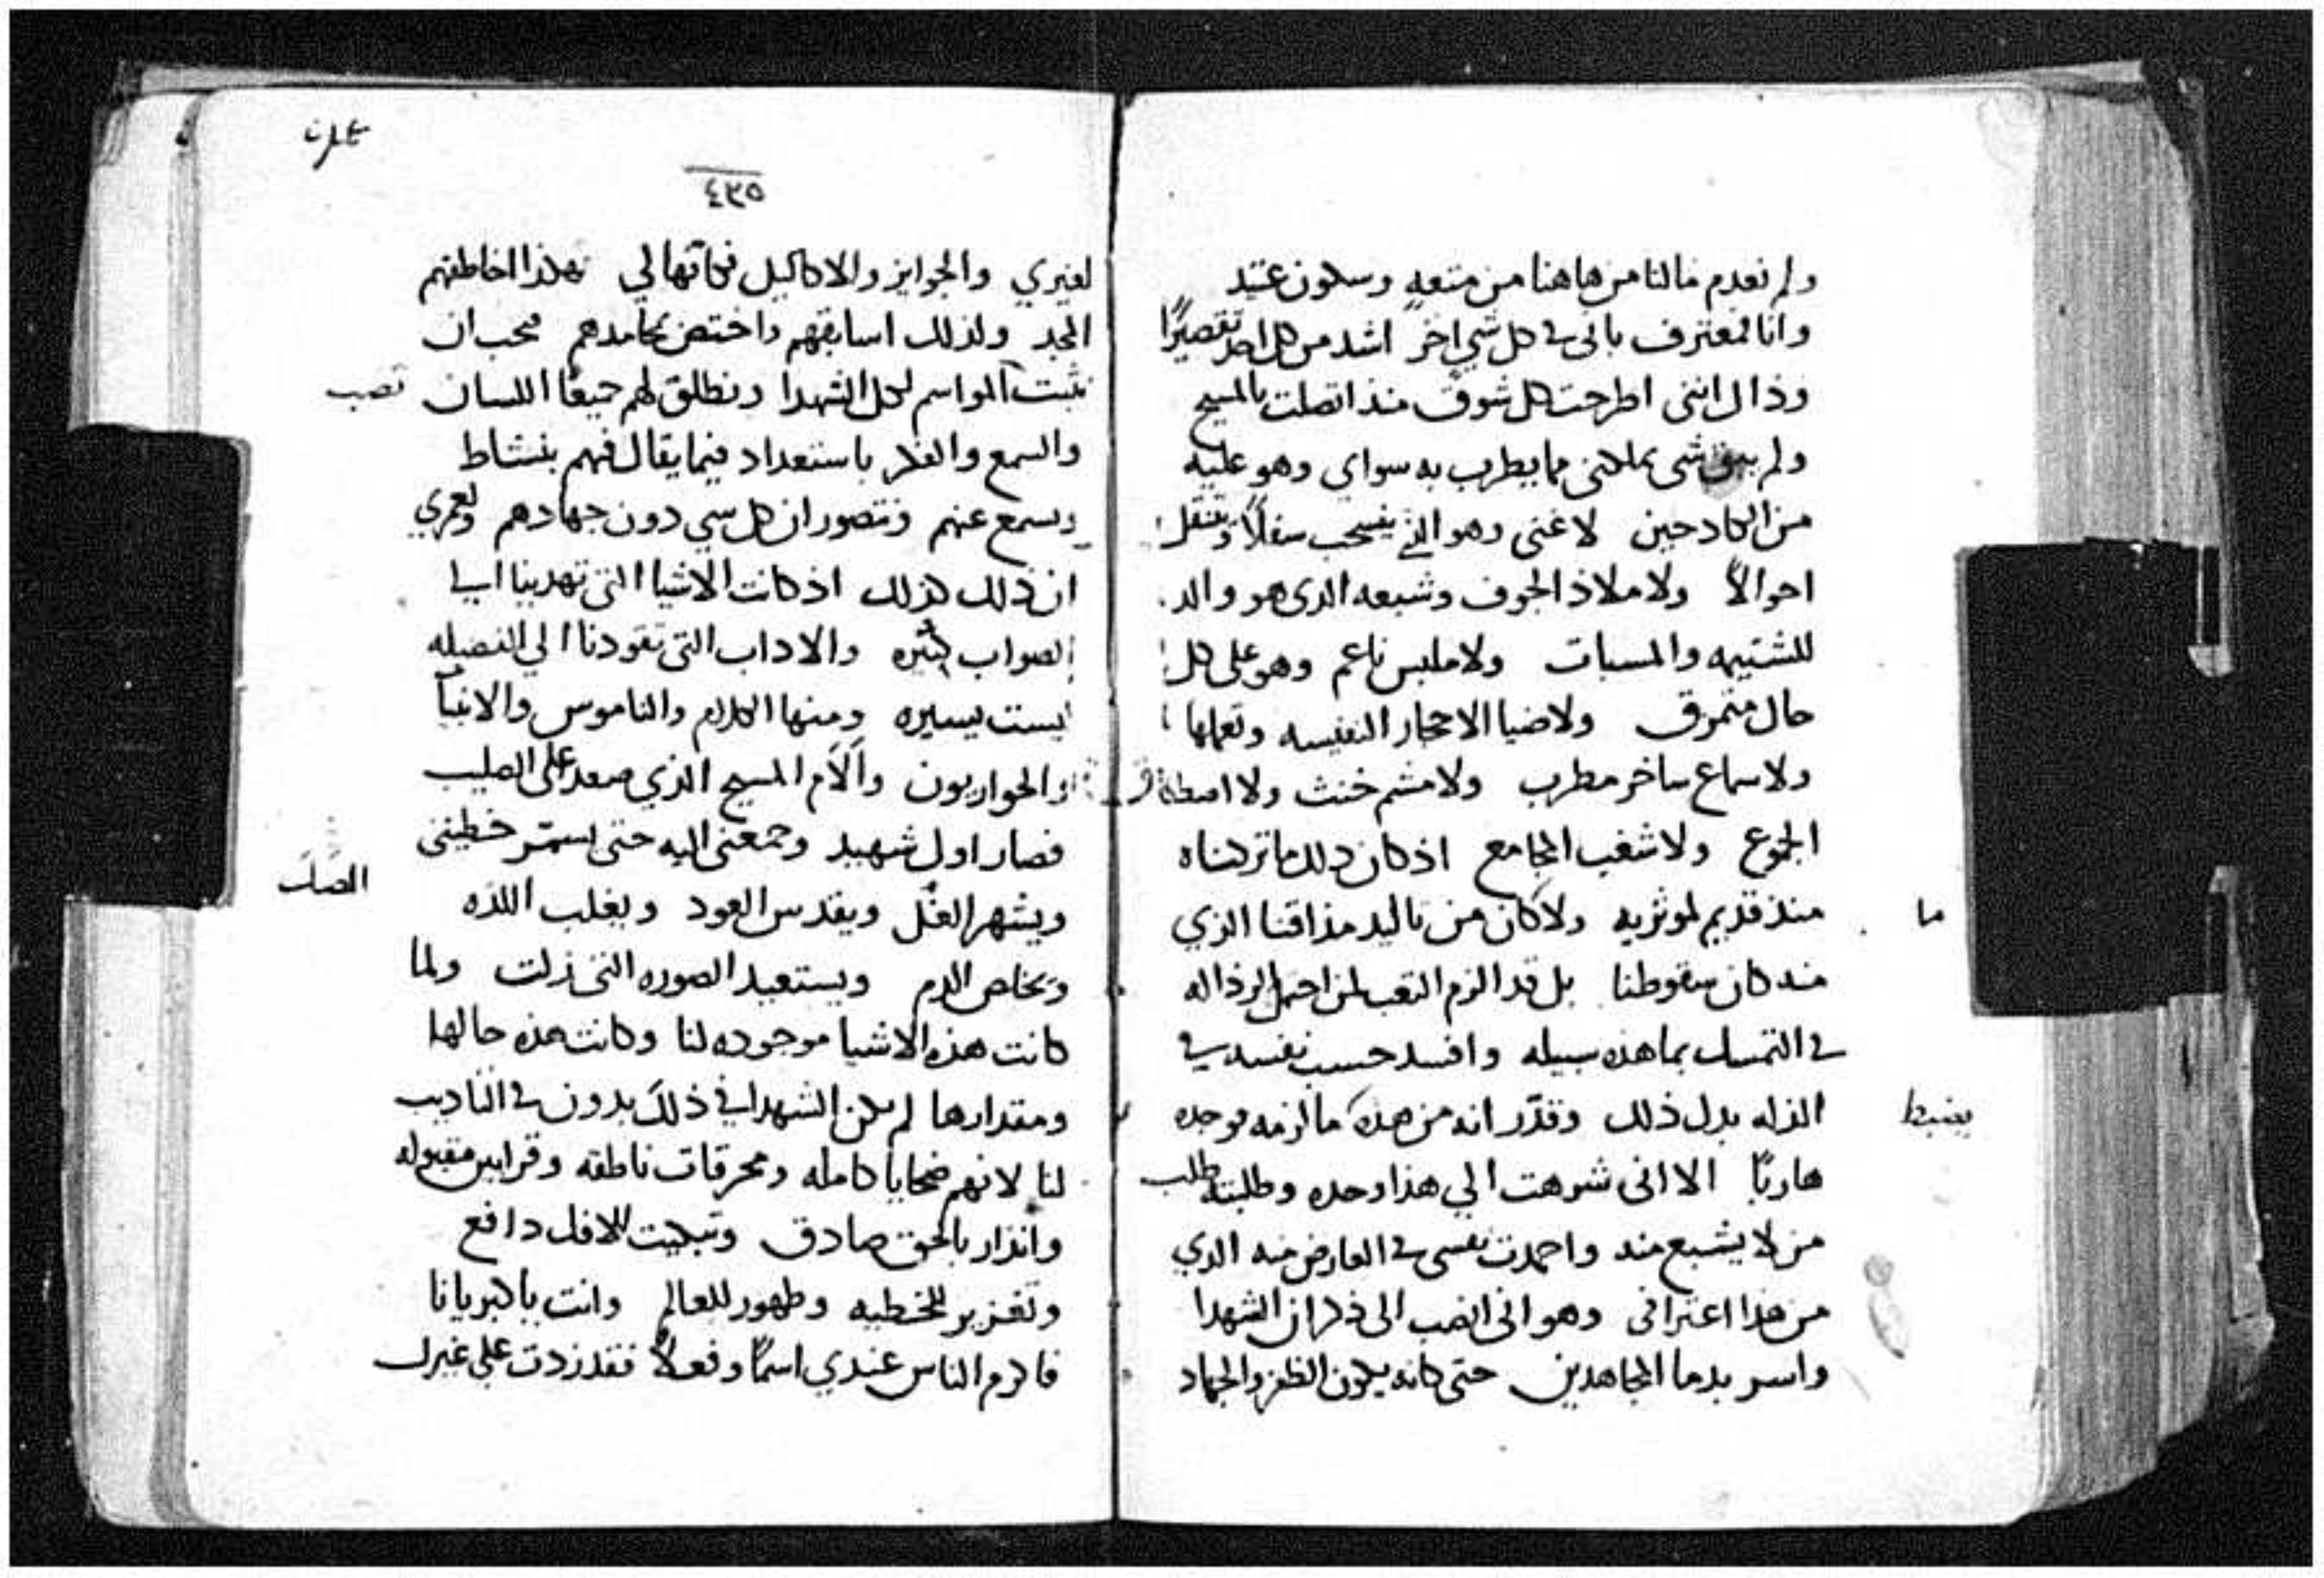 ولم نعدم مالنا من هاهنا من متعه وسكون عتيد
وانا لمعترف باني في كل شي اخر اشد من كل احد تقصيرًا
وذاك انني اطرحت كل شوق منذ اتصلت بالمسيح
ولم يبق شي يملكني مما يطرب به سواي وهو عليه
من الكادحين لا غني وهو الذي يسحب سفلًا وتنقل
احوالًا ولا ملاذ الجوف وشبعه الذي هو والد
للشتيمه والمسبات ولا ملبس ناعم وهو على كل
حال متمزق ولا ضيا الاحجار النفيسه ولمعانها
ولا سماع ساخر مطرب ولا مشم خنث ولا اصطفاق
الجموع ولا شغب المجامع اذ كان ذلك ما تركناه
منذ قديم لموثريه ولا كان من تاليد مذاقنا الذي
ما
منه كان سقوطنا بل قد الزم التعب لمن احمل الرذاله
في التمسك بما هذه سبيله وافسد حسب نفسه في
الذله بدل ذلك وقدّر انه من هذه ما لزمه فوجده
يضبط
هاربًا الا اني شرهت الي هذا وحده وطلبته طلب
من لا يشبع منه واحمدت نفسي في العارض منه الذي
من هذا اعترافي وهو اني انصب الى ذكران الشهدا
واسر بدما المجاهدين حتى كانه يكون الظفر والجهاد
٤٣٥
لغيري والجوايز والاكاليل فكانها لي فهكذا اخاطفهم
المجد ولذلك اسابقهم واختص بمحامدهم فحب ان
نثبت المواسم لكل الشهدا ونطلق لهم جميعًا اللسان
نصب
والسمع والفكر باستعداد فيما يقال فيهم بنشاط
ويسمع عنهم ونتصور ان كل شي دون جهادهم ولعمري
ان ذلك كذلك اذ كانت الاشيا التي تهدينا الي
الصواب كثيره والاداب التي تقودنا الي الفضيله
ليست يسيره ومنها الكلام والناموس والانبيا
والحواريون وآلام المسيح الذي صعد على الصليب
فصار اول شهيد وجمعني اليه حتى يسمّر خطيتي
الصك
ويشهر الغل ويقدس العود ويغلب اللذه
ويخلص ادم ويستعيد الصوره التي زلت ولما
كانت هذه الاشيا موجوده لنا وكانت هذه حالها
ومقدارها لم يكن الشهدا في ذلك بدون في التاديب
لنا لانهم ضحايا كامله ومحرقات ناطقه وقرابين مقبوله
وانذار بالحق صادق وتبكيت للافك دافع
وتغزير للخطيه وطهور للعالم وانت يا كبريانا
فاكرم الناس عندي اسمًا وفعلًا فقد زدت على غيرك